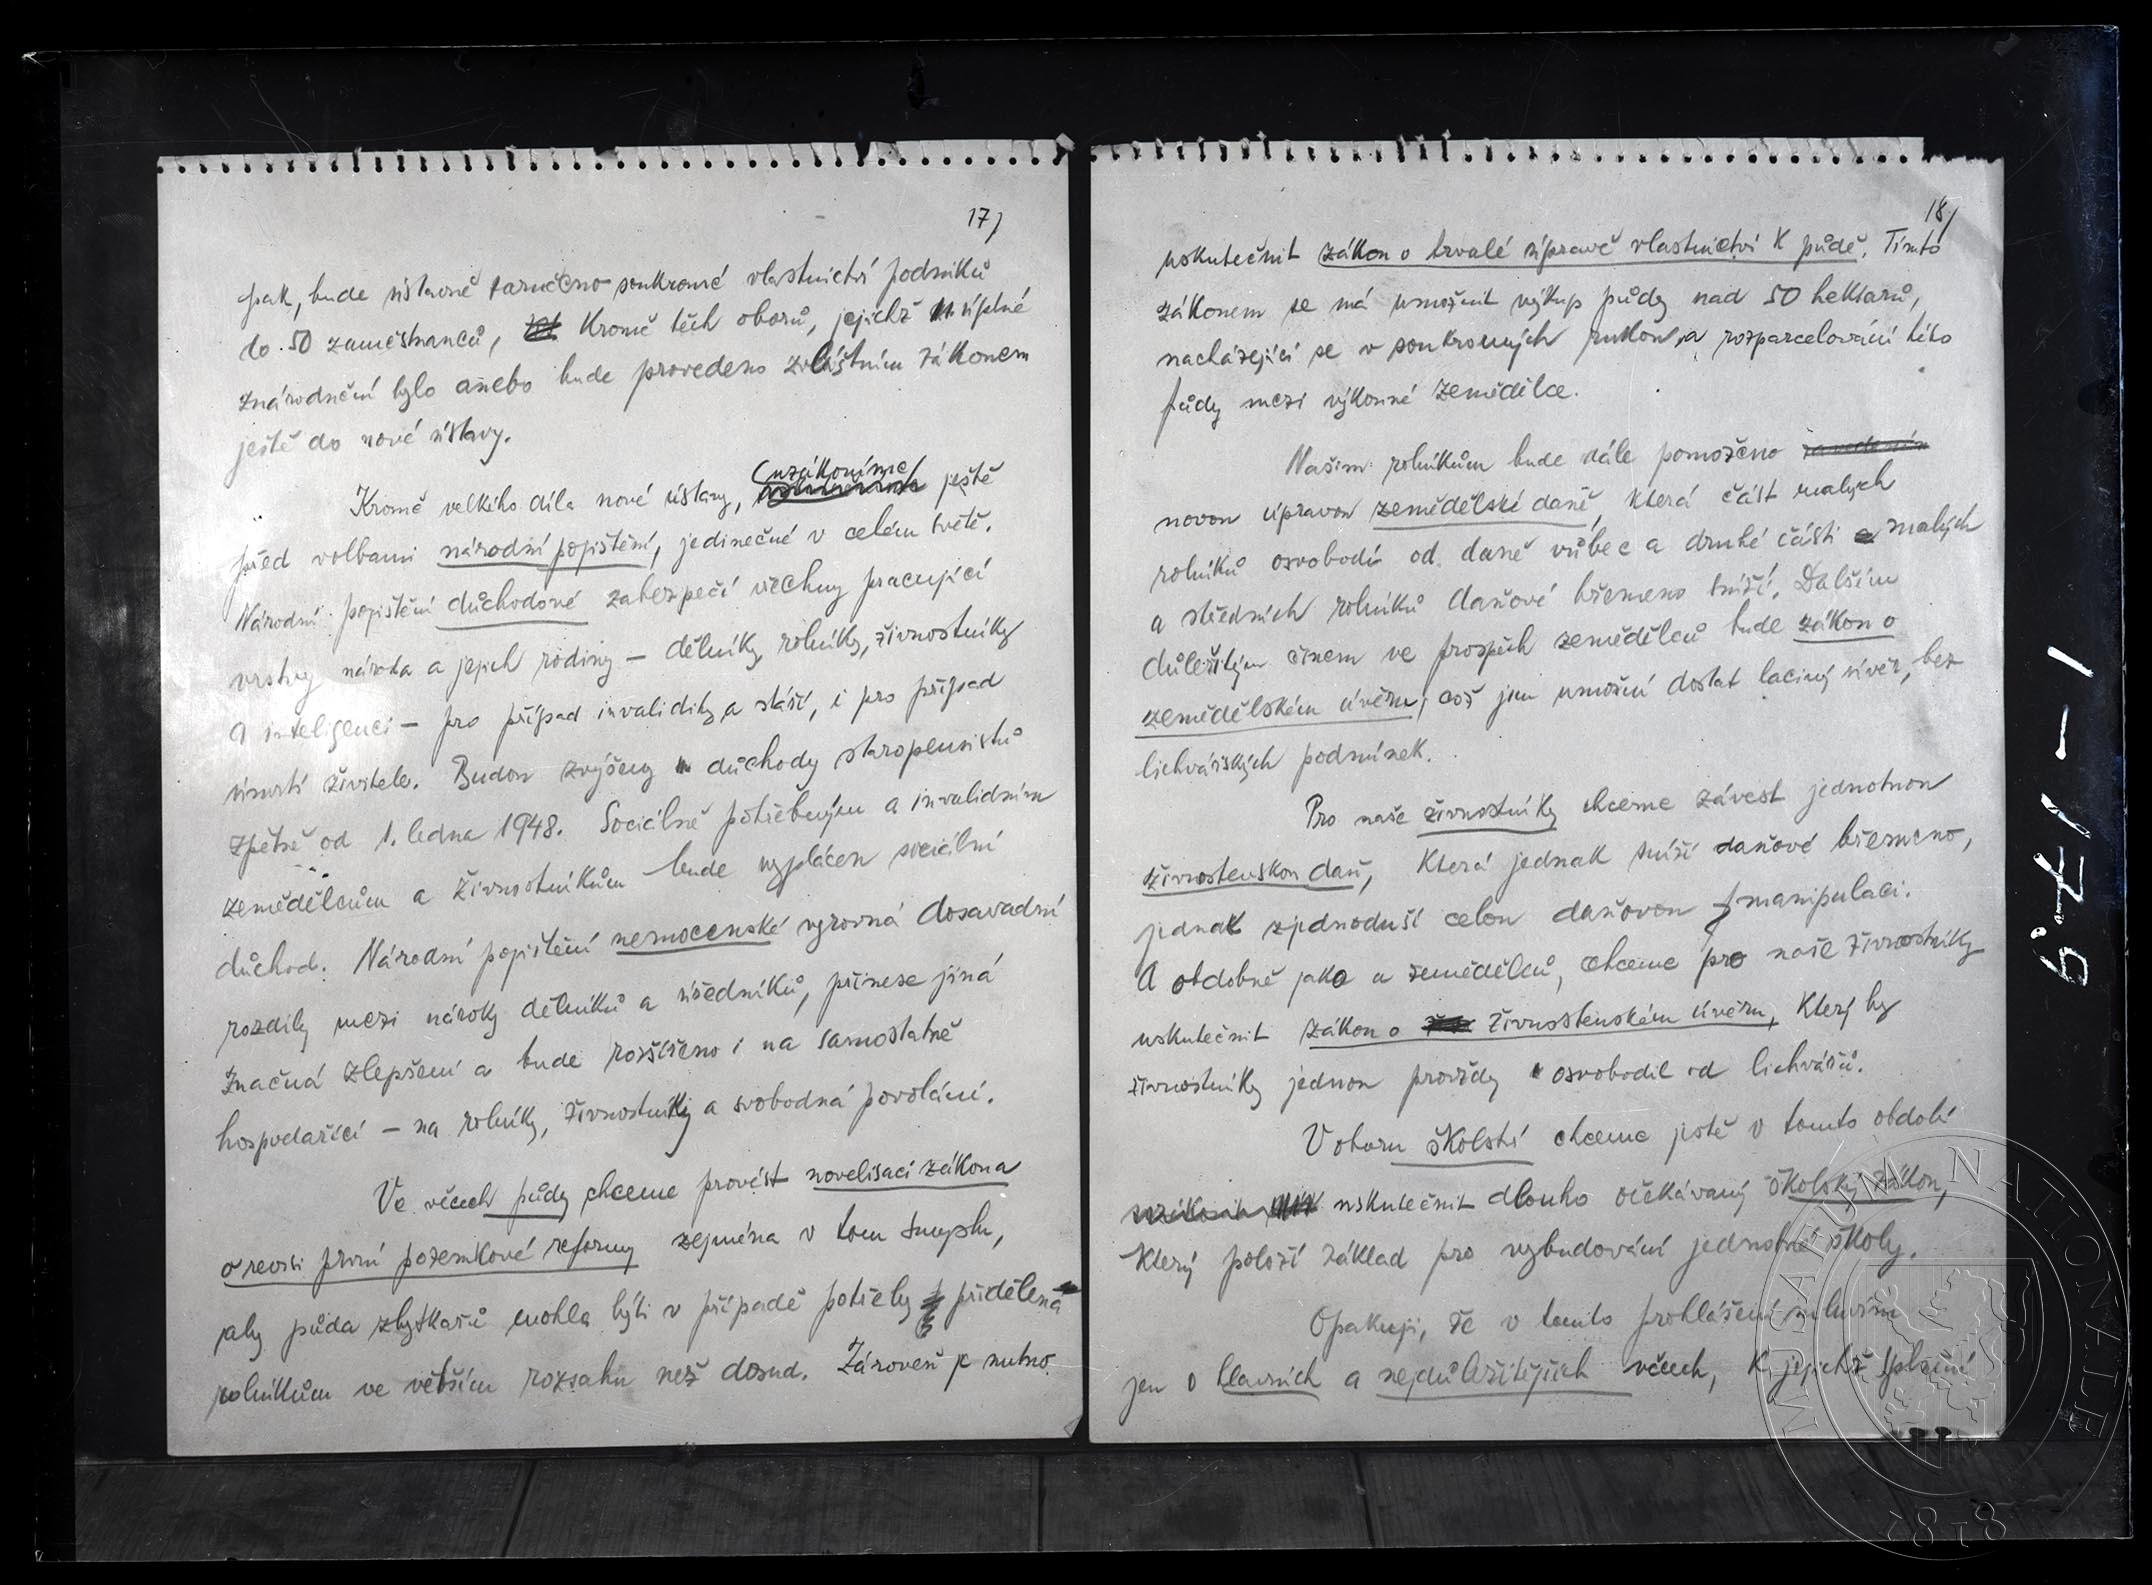 17)
pak, bude ústavně zaručeno soukromé vlastnictví podniků
do 50 zaměstnanců, kromě těch oborů, jejichž úplné
znárodnění bylo anebo bude provedeno zvláštním zákonem
ještě do nové ústavy.
Kromě velkého díla nové ústavy, uzákoníme ještě
před volbami národní pojištění, jedinečné v celém světě.
Národní pojištění důchodové zabezpečí všechny pracující
vrstvy národa a jejich rodiny – dělníky, rolníky, živnostníky
a inteligenci – pro případ invalidity a stáří, i pro případ
úmrtí živitele. Budou zvýšeny důchody staropensistů
zpětně od 1. ledna 1948. Sociálně potřebným a invalidním
zemědělcům a živnostníkům bude vyplácen sociální
důchod. Národní pojištění nemocenské vyrovná dosavadní
rozdíly mezi nároky dělníků a úředníků, přinese jiná
značná zlepšení a bude rozšířeno i na samostatně
hospodařící – na rolníky, živnostníky a svobodná povolání.
Ve věcech půdy chceme provést novelisaci zákona
o revisi první pozemkové reformy zejména v tom smyslu,
aby půda zbytkařů mohla býti v případě potřeby přidělena
rolníkům ve větším rozsahu než dosud. Zároveň je nutno
18)
uskutečnit zákon o trvalé úpravě vlastnictví k půdě. Tímto
zákonem se má umožnit výkup půdy nad 50 hektarů,
nacházející se v soukromých rukou, a rozparcelování této
půdy mezi výkonné zemědělce.
Našim rolníkům bude dále pomoženo
novou úpravou zemědělské daně, která část malých
rolníků osvobodí od daně vůbec a druhé části malých
a středních rolníků daňové břemeno sníží. Dalším
důležitým činem ve prospěch zemědělců bude zákon o
zemědělském úvěru, což jim umožní dostat laciný úvěr, bez
lichvářských podmínek.
Pro naše živnostníky chceme závest jednotnou
živnostenskou daň, která jednak sníží daňové břemeno,
jednak zjednoduší celou daňovou manipulaci.
A obdobně jako u zemědělců, chceme pro naše živnostníky
uskutečnit zákon o živnostenském úvěru, který by
živnostníky jednou provždy osvobodil od lichvářů.
V oboru školství chceme ještě v tomto období
uskutečnit dlouho očekávaný školský zákon,
který položí základ pro vybudování jednotné školy.
Opakuji, že v tomto prohlášení mluvím
jen o hlavních a nejdůležitějších věcech, k jejichž splnění
1-17-9
MUSAEUM NATIONALE
1818